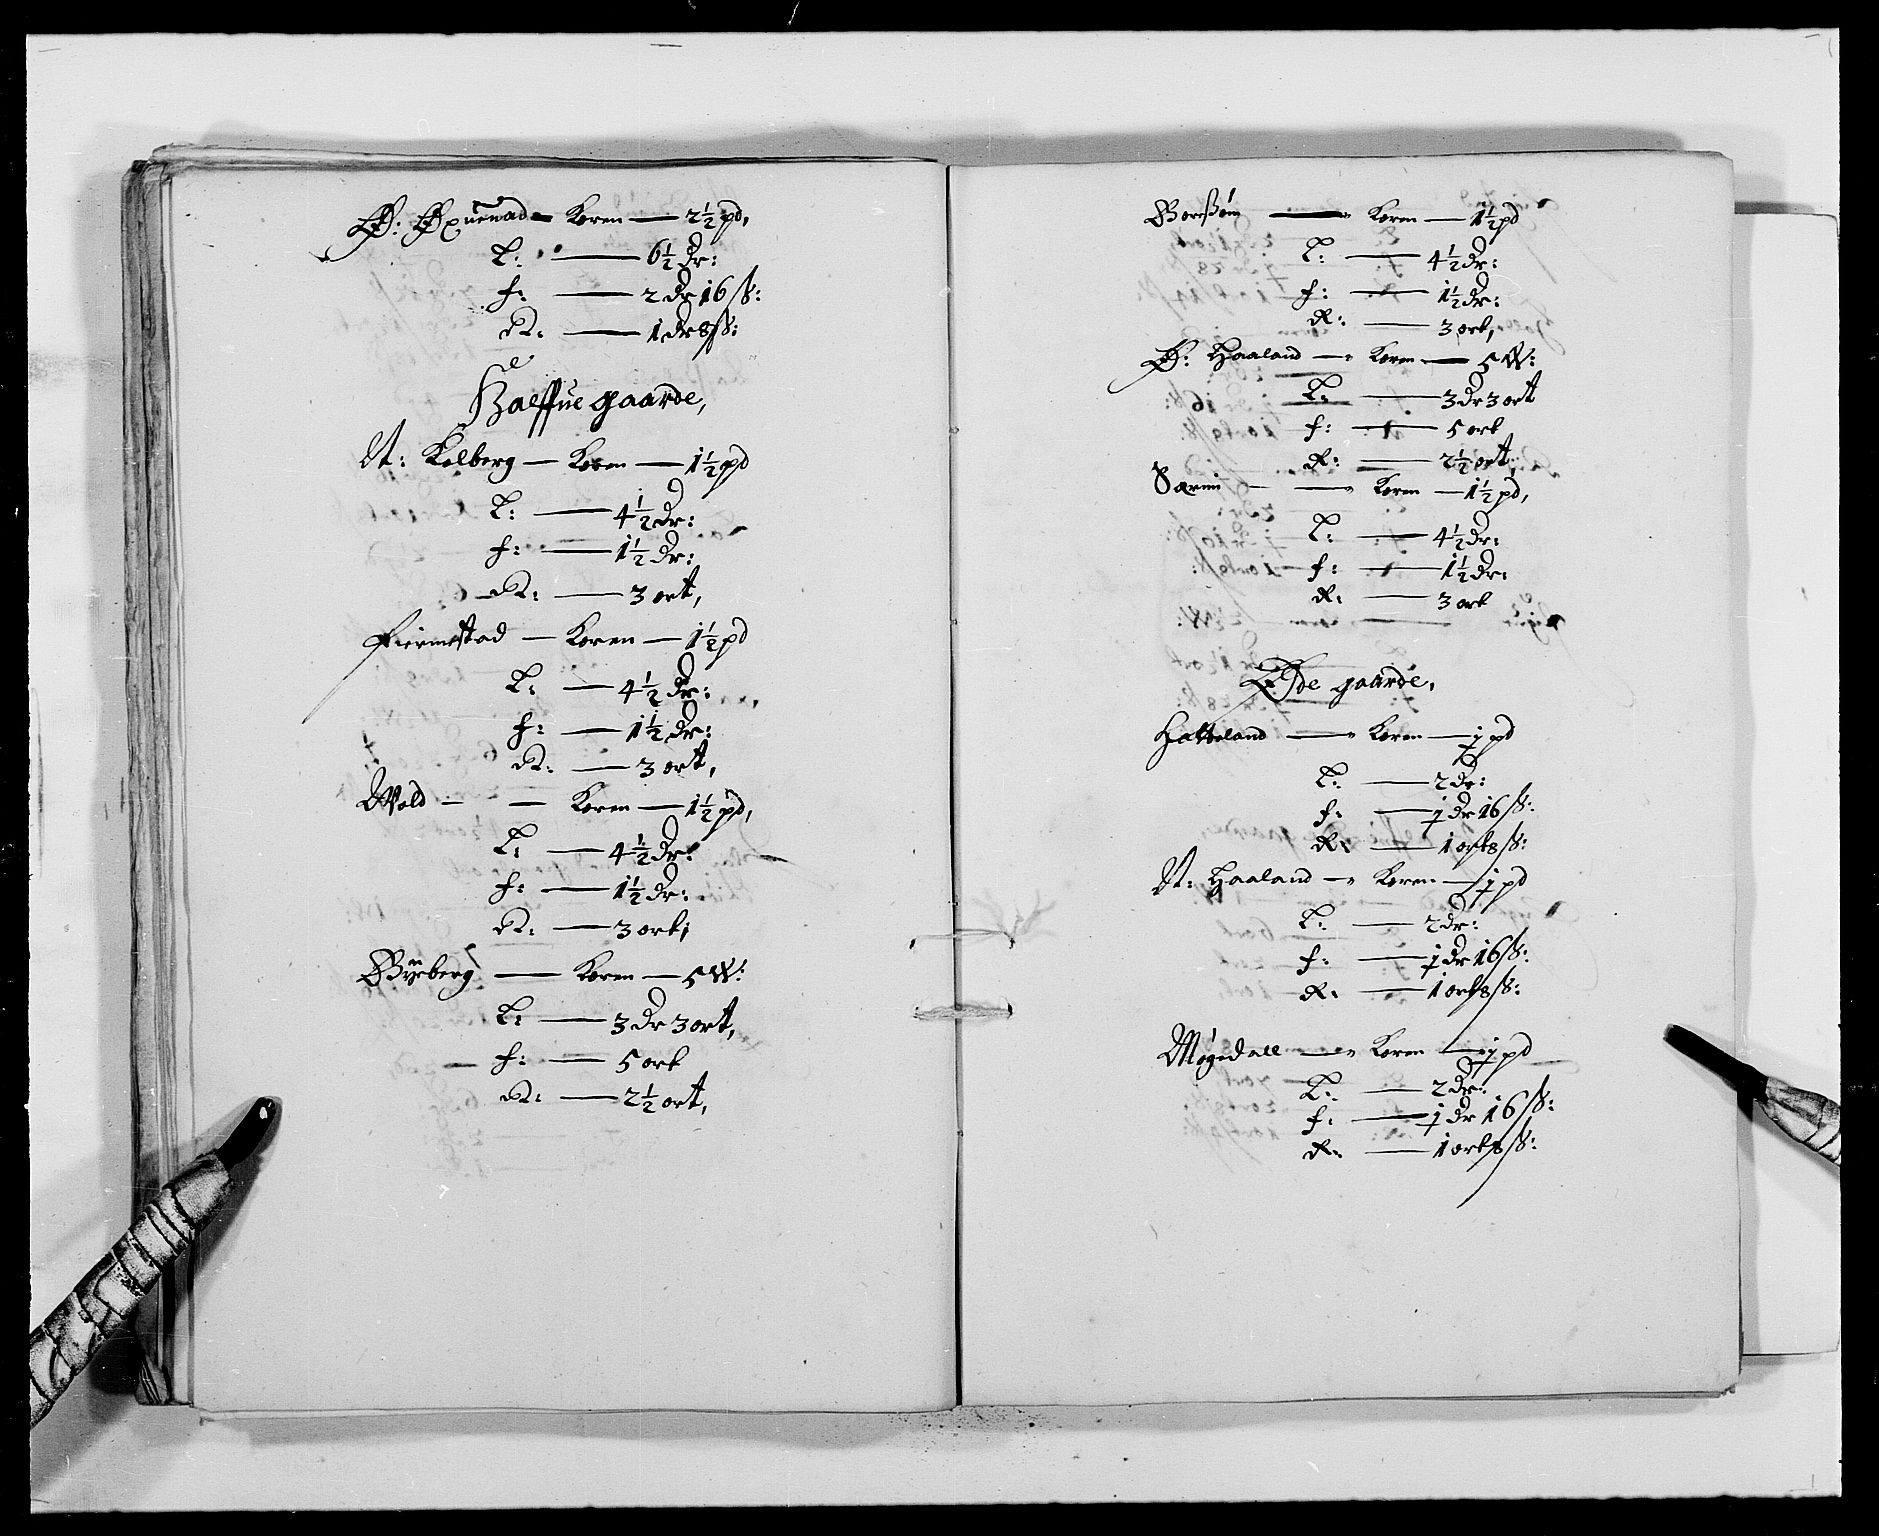 Ø: Øxnenad — Koren — 2½ pd,
L: — 6½ dr:
f: — 2 dr 16 ß:
R: — 1 dr 8 ß:
Halffue gaarde,
N: Kolberg — Koren — 1½ pd
L: — 4½ dr:
f: — 1½ dr:
R: — 3 ort,
Fiermestad — Koren — 1½ pd
L: — 4½ dr:
f: — 1½ dr:
R: — 3 ort,
Wold — — Koren — 1½ pd,
L: — 4½ dr:
f: — 1½ dr:
R: — 3 ort,
Byeberg — Koren — 5 W:
L: — 3 dr 3 ort,
f: — 5 ort
R: — 2½ ort,
Boreßøm — Koren — 1½ pd
L: — 4½ dr:
f: — 1½ dr:
R: — 3 ort,
Ø: Haaland — Koren — 5 W:
L: — 3 dr 3 ort
f: — 5 ort
R: — 2½ ort,
Særimi — Koren — 1½ pd,
L: — 4½ dr:
f: — 1½ dr:
R: — 3 ort
Øde gaarde,
Hatteland — Koren — j pd
L: — 2 dr:
f: — j dr 16 ß:
R: — 1 ort 8 ß:
N: Haaland — Koren — j pd
L: — 2 dr:
f: — j dr 16 ß:
R: — 1 ort 8 ß:
Møgedall — Koren — j pd
L: — 2 dr:
f: — j dr 16 ß:
R: — 1 ort 8 ß: